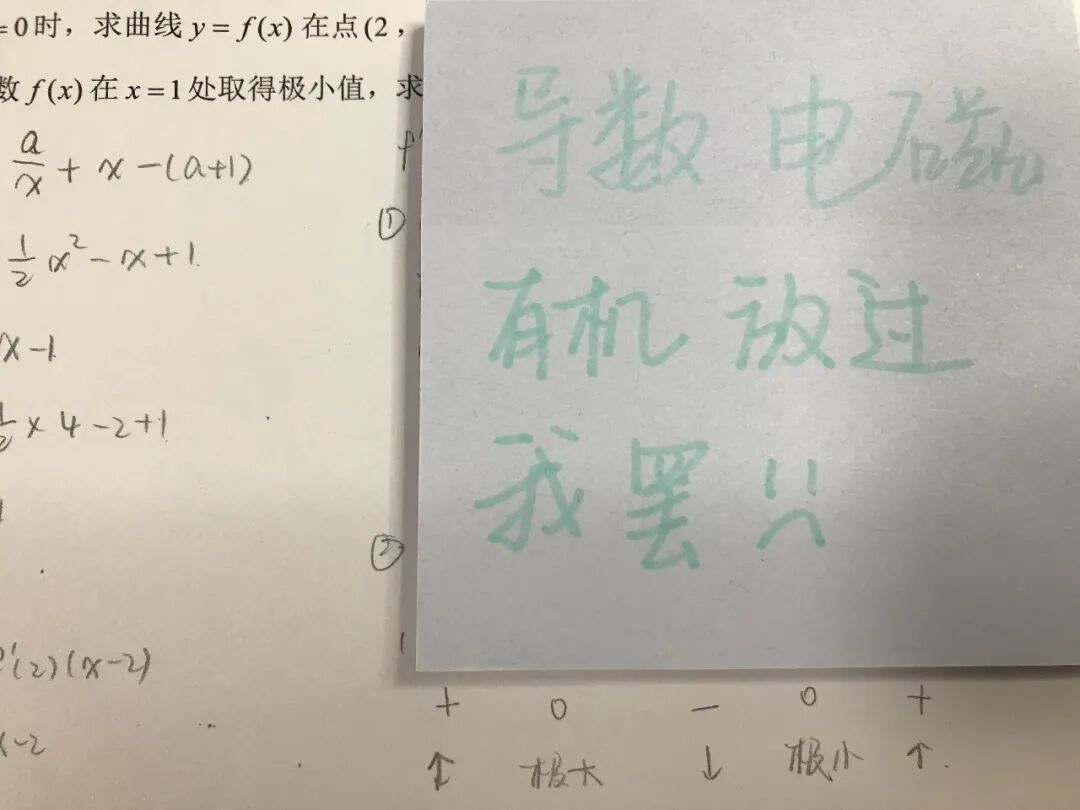 =0时，求曲线 y = f(x) 在点(2，
数 f(x) 在 x = 1 处取得极小值，求
a/x + x - (a+1)
1/2 x² - x + 1
x - 1
1/2 × 4 - 2 + 1
'(2)(x-2)
x-2
①
②
导数 电磁
有机 放过
我 罢 :(
+ 0 - 0 +
↑ 极大 ↓ 极小 ↑.